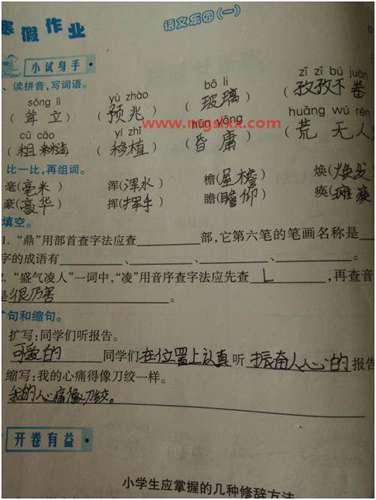 寒假作业 语文乐园(一)
小试身手
、读拼音,写词语。
sǒng lì yù zhào bō li zī zī bú juàn
(耸立) (预兆) (玻璃) (孜孜不卷
cū cāo yí zhí hūn yōng huāng wú rén
(粗糙) (移植) (昏庸) (荒 无人
www.mgslxx.com
比一比,再组词。
毫(毫米) 浑(浑水) 檐(屋檐) 焕(焕发
豪(豪华) 挥(挥手) 瞻(瞻仰) 痪(瘫痪
填空。
1. “鼎”用部首查字法应查 部,它第六笔的笔画名称是
字的成语有 、 。
2. “盛气凌人”一词中,“凌”用音序查字法应先查 L ,再查音
是很厉害 。
扩句和缩句。
扩写:同学们听报告。
可爱的 同学们 在位置上认真 听 振奋人心的 报告
缩写:我的心痛得像刀绞一样。
我的心痛像刀绞。
开卷有益
小学生应掌握的几种修辞方法